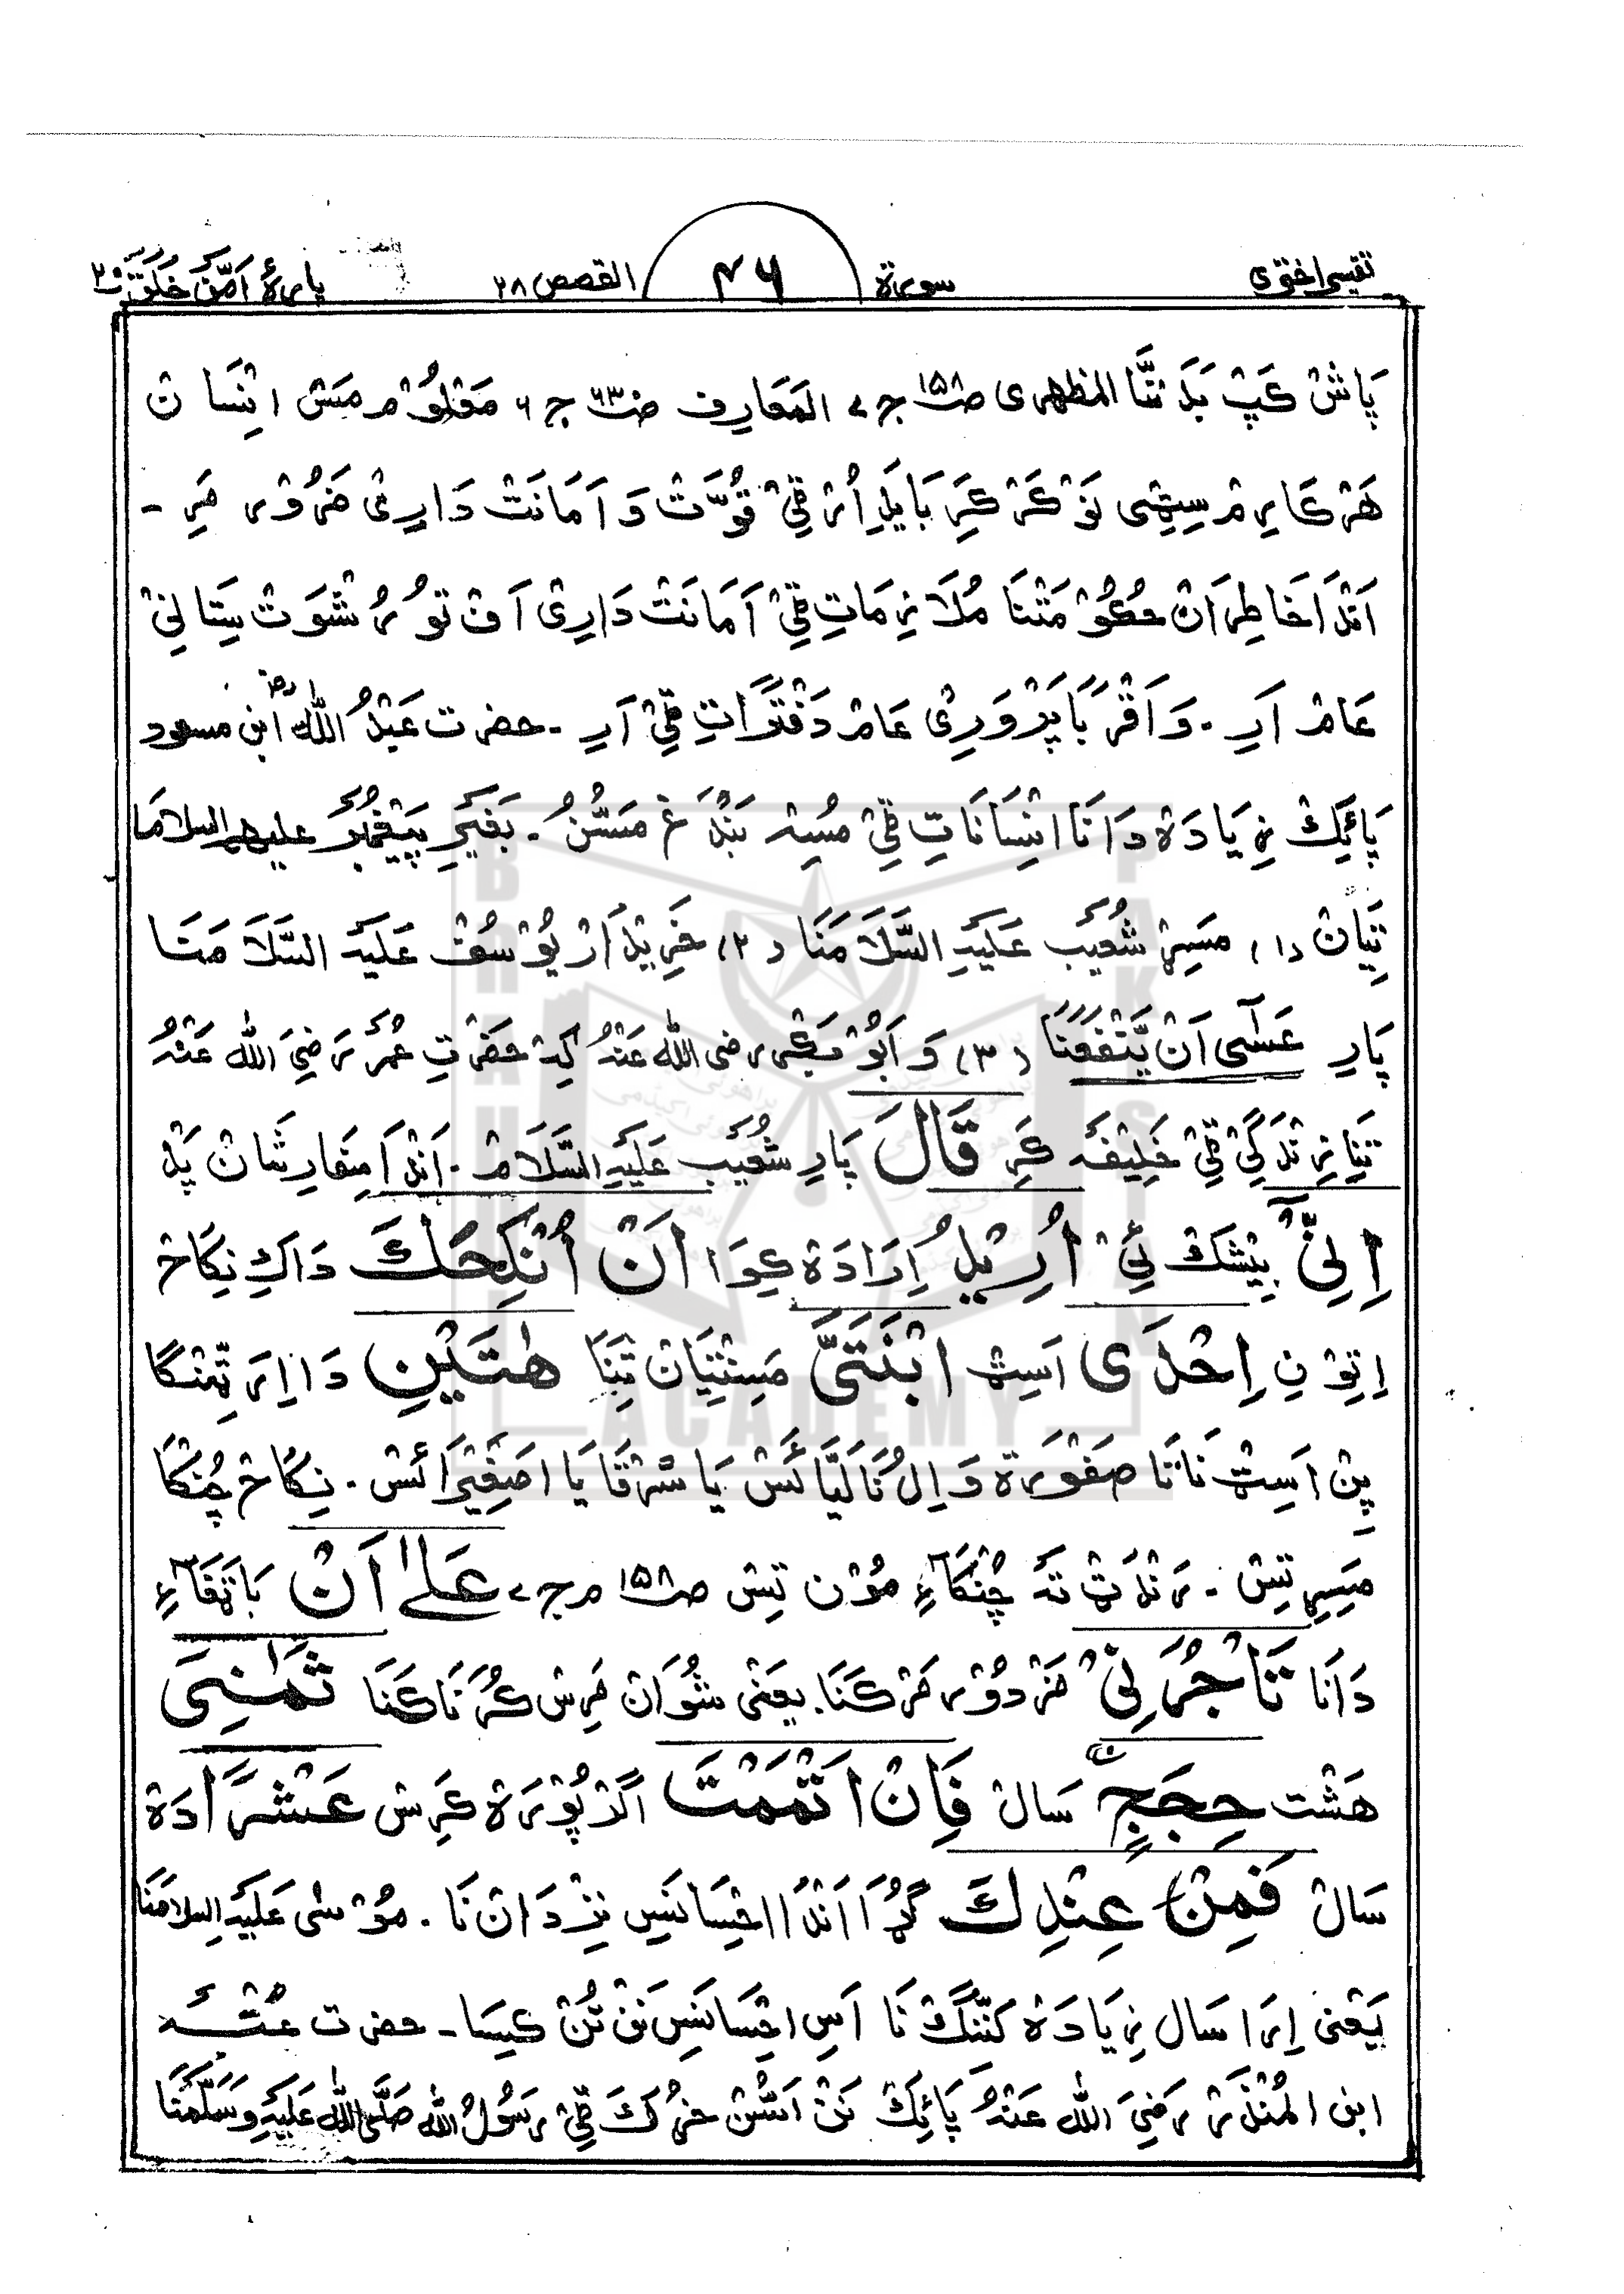 تفسیر اختری سورة ۴۶ القصص ۲۸ پارهٔ اَمَّنْ خَلَقَ ۲۰
پَاشْ کَپْ بَدَنْنَا المظهری صـ۱۵۸ جـ۷ المَعَارِف صـ۶۳۰ جـ۶ مَعْلُوْم مَسْ اِنْسَان
هَرْ کَارِمْ سِیْتِی نَوْکَرْ کَرِ بَایَدِ اُرْقِیْ قُوَّتْ وَ اَمَانَتْ دَارِیْ ضَرُوْر مَرِ -
اَنْدَا خَاطِرَانْ حُکُوْمَتْنَا مُلَازِمَاتِ قِیْ اَمَانَتْ دَارِیْ اَفْ تَوْ رُشْوَتْ سِتَانِیْ
عَامْ اَرِ - وَ اَقْرَبَا پَرْوَرِیْ عَامْ دَفْتَرَاتِ قِیْ اَرِ - حضرت عَبْدُ اللّٰهْ ابن مسعود رض
پَائِکْ زِیَادَہ دَانَا اِنْسَانَاتِ قِیْ مُسِہْ بَنْدَغْ مَسُّنُ - بَغَیْرِ پَیْغَمْبَرْ علیهم السلامَا
تِیَانْ (۱) مَسِیْرْ شُعَیْب عَلَیْہِ السَّلَامَنَا (۲) خَرِیْدَارْ یُوْسُفْ عَلَیْہ السَّلَامَنَا
پَارِ عَسٰی اَنْ یَّنْفَعَنَا (۳) وَ اَبُوْ بَکْر رضی اللّٰه عَنْہُ کِہْ حضرتِ عُمَرْ رَضِیَ اللّٰه عَنْهُ
تَنِا زِنْدَگِیْ قِیْ خَلِیْفَہ کَرِ قَالَ پَارِ شُعَیْب عَلَیْہِ السَّلَامْ - اَنْدَا مِقَارِشَانْ پَدْ
اِنِّیْٓ بِیْشَکْ نِیْ اُرِیْدُ اِرَادَہ کِوَا اَنْ اُنْکِحَكَ دَاکِ نِکَاحْ
اِتِوْ نِ اِحْدَی اَسِٹ ابْنَتَیَّ مَسِنْتِیَانْ تَنَا هٰتَیْنِ دَا اِرَ تِّنْکَا
پِن اَسِٹْ نَاتَا صَفُوْرَہ وَ اِلُ نَا لَیَّا ئَسْ یَا شَرَقَا یَا اصَغِیْرَا ئَسْ - نِکَاحْ چُنْکَا
مَسِیْرِ تِسْ - رَنْدَتْ تَہ چُنْکَاءِ مُوْن تِسْ صـ۱۵۸ مـ جـ۷ عَلٰٓی اَنْ بَاتَفَاءِ
دَانَا تَاْجُرَنِیْ مَزْدُوْر مَرْ کَنَا. یعنی شُوَانْ مَرِسْ کُرَّنَا کَنَا ثَمٰنِیَ
هَشْت حِجَجٍ ۚ سَالْ فَاِنْ اَتْمَمْتَ اگَرْ پُوْرَہ کَرِسْ عَشْرًا دَہ
سَالْ فَمِنْ عِنْدِكَ گُڑَا اَنْدَا اِحْسَانَسِ نِزْدَانْ نَا - مُوْسٰی عَلَیْہِ السلامَنَا
یَعْنی اِرَا سَال زِیَادَہ کَنِّنْگْ نَا اَسِ اِحْسَانَسِ نَنْ تُنْ کِیْسَا - حضرت عُتْبَہ
ابن المُنْذَرْ رَضِیَ اللّٰه عَنْہُ پَائِکْ نَنْ اَسُّنْ خُرْکَ قِیْ رَسُوْلُ اللّٰه صَلَّی اللّٰه عَلَیْہِ وَسَلَّمْنَا
BRAHUI ACADEMY PAKISTAN